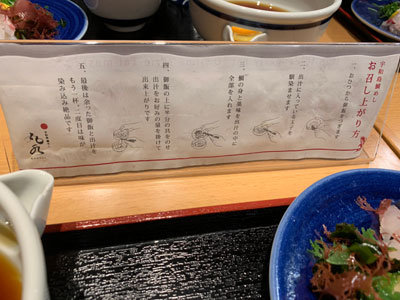 宇和島鯛めし
お召し上がり方
一、おひつから御飯をつぎます
二、出汁に入っている玉子を
馴染ませます
三、鯛の身と薬味を出汁の中に
全部を入れます
四、御飯の上に半分の具をのせ
出汁をお好みの量を掛けて
出来上がりです
五、最後は余った御飯と出汁を
もう一杯、二度目は味が
染み込み絶品です